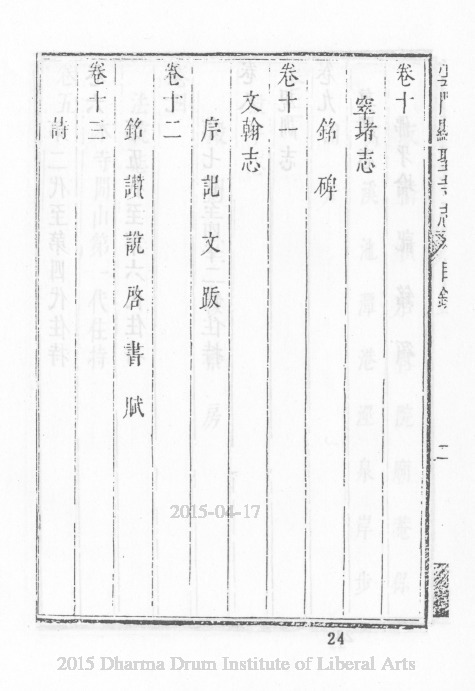 雲門顯聖寺志 目錄 二
卷十
窣堵志
銘 碑
卷十一
文翰志
序 記 文 跋
卷十二
銘 讚 說 啓 書 賦
卷十三
詩
2015-04-17
24
2015 Dharma Drum Institute of Liberal Arts